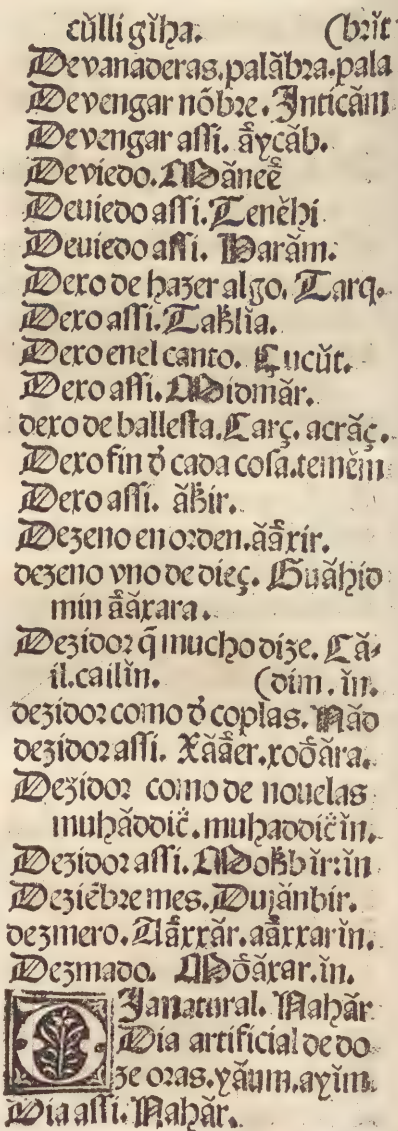 cŭlli gĭha. (brĭt
Devanaderas. palăbra. pala
Devengar nõbre. Inticăm
Devengar assi. ăycăb.
Deviedo. Măneẽ
Deuiedo assi. Tenĕhi
Deuiedo assi. Harăm.
Dexo de hazer algo. Tarq.
Dexo assi. Taklĭa.
Dexo enel canto. Çucŭt.
Dexo assi. Midmăr.
dexo de ballesta. Carç. acrăç.
Dexo fin d̃ cada cosa. temĕm
Dexo assi. ăkir.
Dezeno en orden. ăăxir.
dezeno vno de dieç. Guăhid
min ăăxara.
Dezidor q̃ mucho dize. Că-
il. cailĭn. (dim. ĭn.
dezidor como d̃ coplas. Năd
dezidor assi. Xăăer. xoăra.
Dezidor como de nouelas
muhăddiĉ. muhaddiĉĭn.
Dezidor assi. Mokbĭr: ĭn
Deziẽbre mes. Dujănbir.
dezmero. Aăxxăr. aăxxarĭn.
Dezmado. Moăxar. ĭn.
DIa natural. Nahăr
Dia artificial de do
ze oras. yăum. ayĭm.
Dia assi. Nahăr.